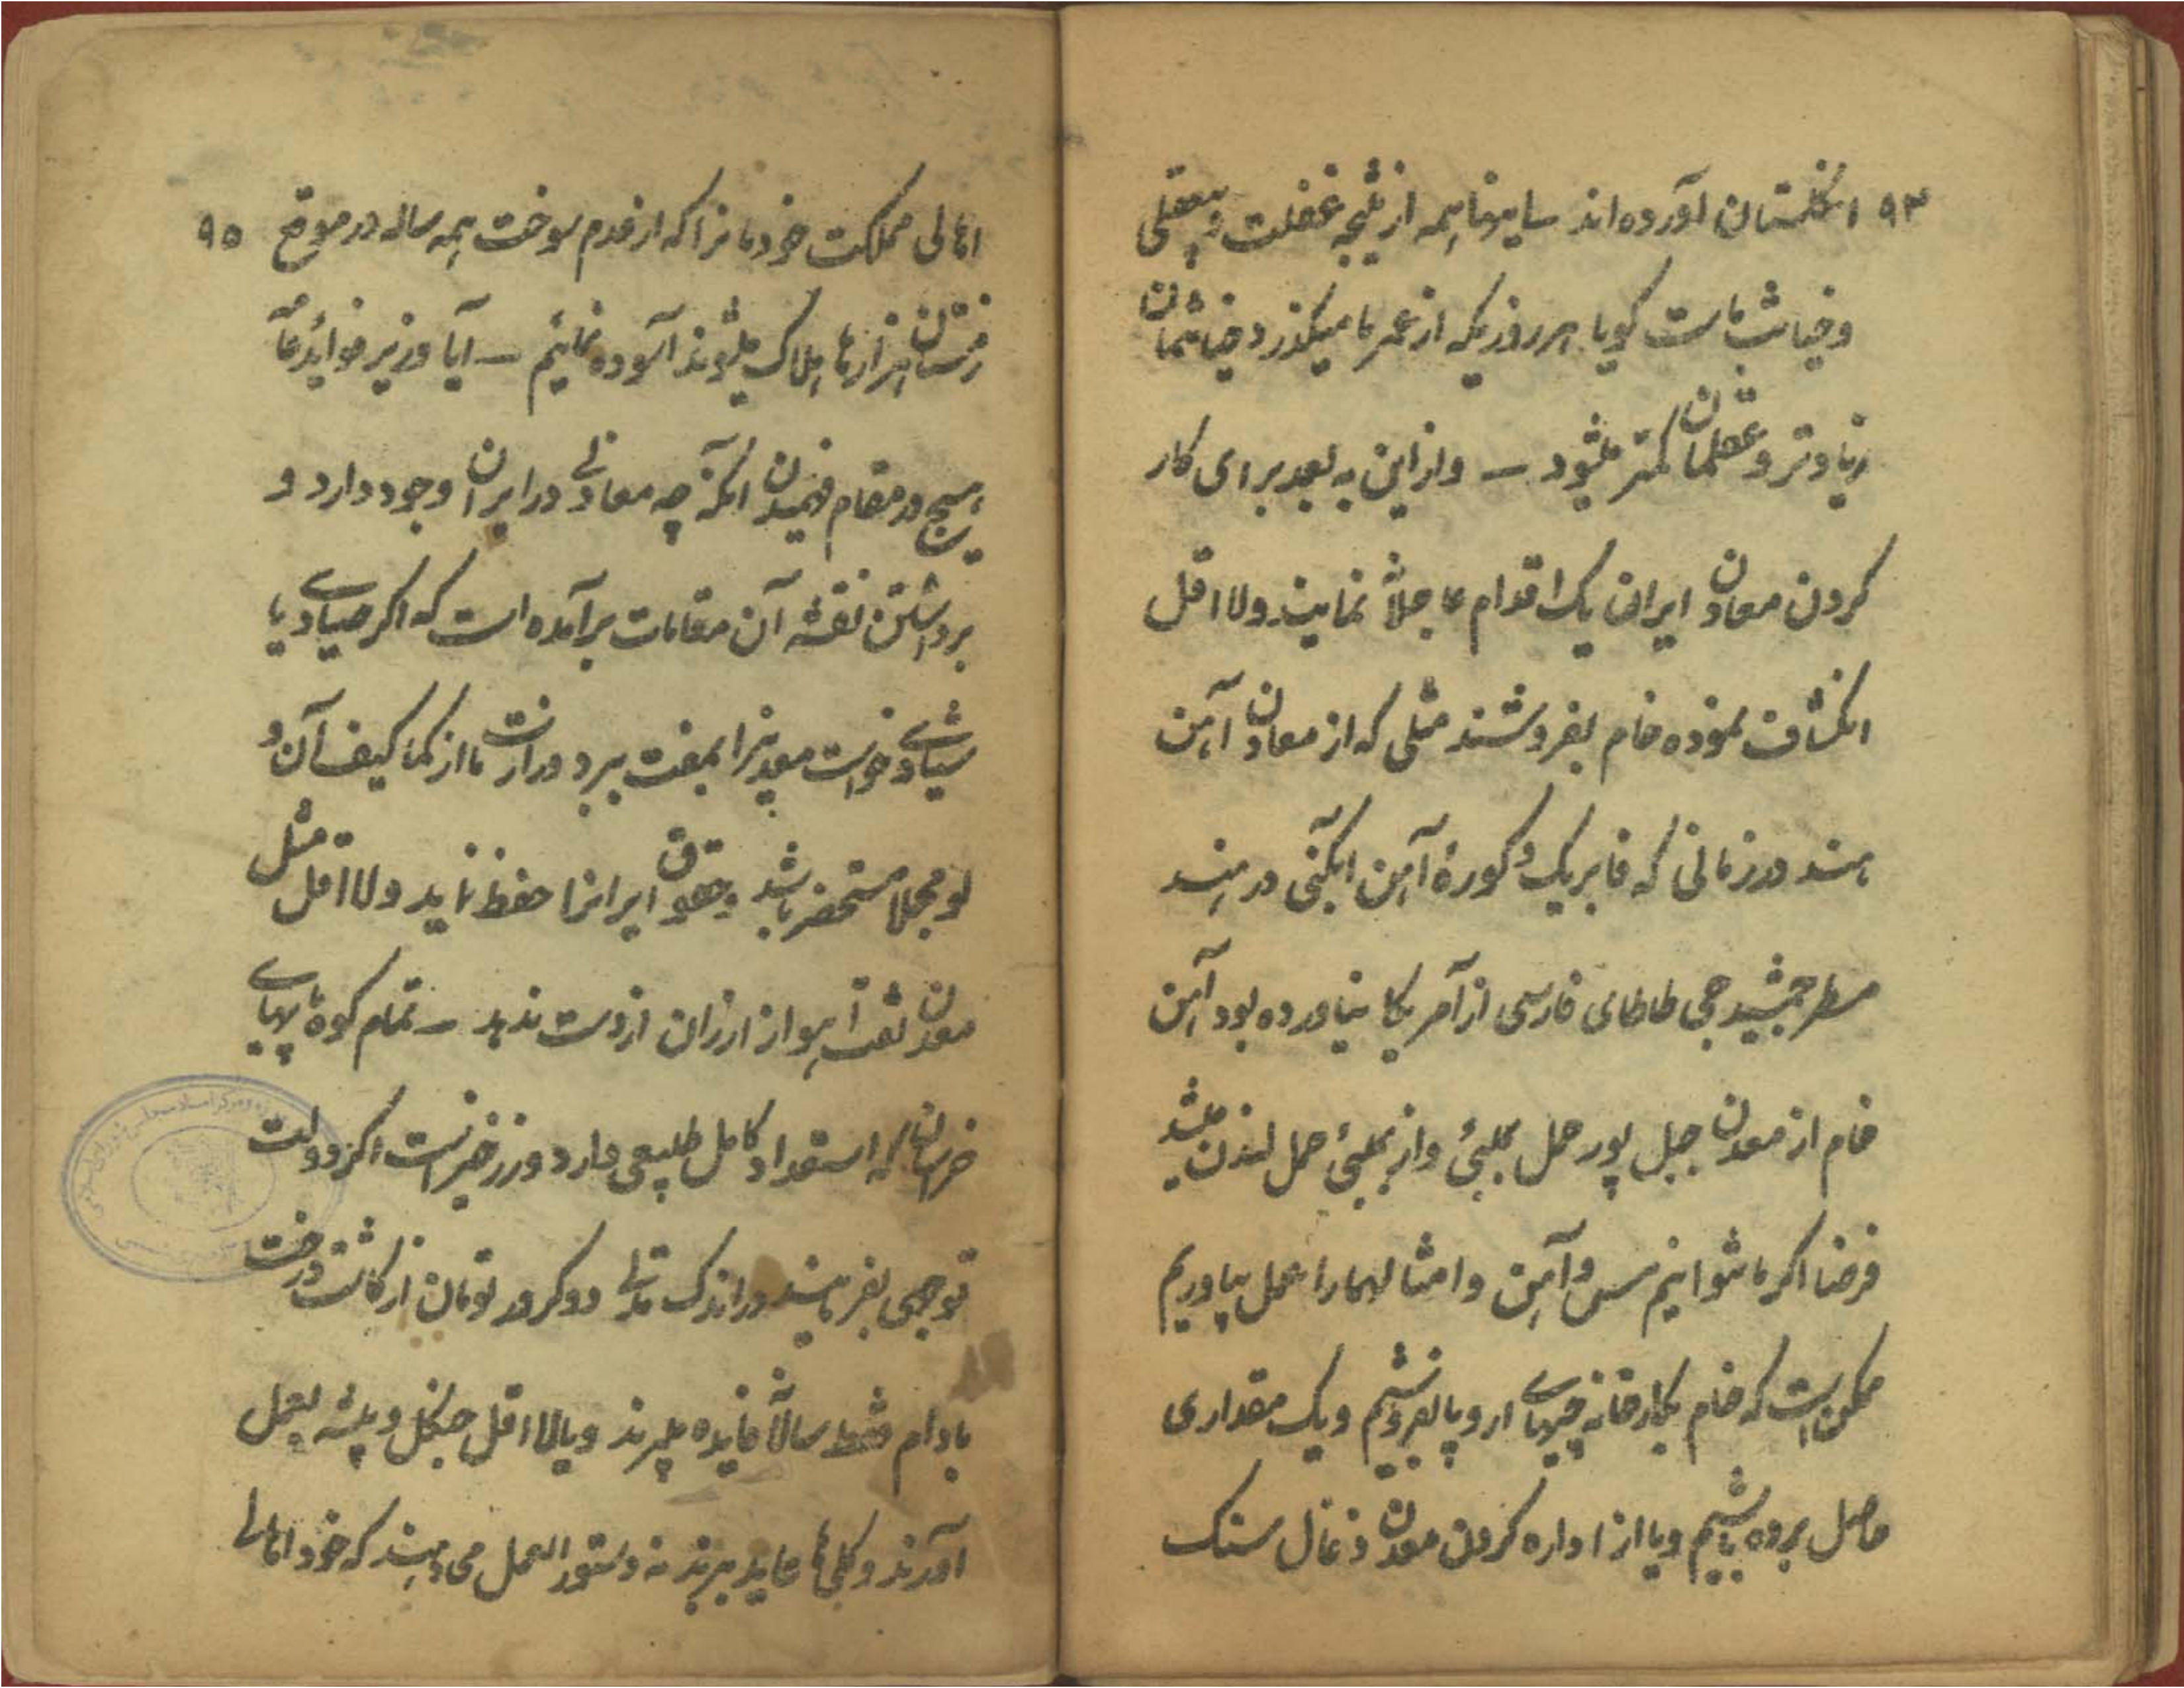 ۹۴ انگلستان آورده‌اند سایرینا همه از نتیجه غفلت و بیعقلی
و خیانت ماست گویا هر روزیکه از عمر ما میگذرد خیانتمان
زیادتر و عقلمان کمتر میشود – و از این به بعد برای کار
کردن معادن ایران یک اقدام عاجلاً نمایند ولا اقل
انکشاف نموده خام بفروشند مثلی که از معادن آهن
هند در زمانی که فابریک و کورهٔ آهن ابکنی در هند
مسطر جمشیدجی طاطای فارسی از آمریکا نیاورده بود آهن
خام از معدن جبل پور حمل بمبئی و از بمبئی حمل لندن میشد
فرضا اکر ما نتوانیم مس و آهن و امثالهما را عمل بیاوریم
ممکن است که خام بکارخانه چیهای اروپا بفروشیم و یک مقداری
حاصل برده باشیم و یا از اداره کردن معدن ذغال سنک
اهالی مملکت خودمانرا که از عدم سوخت همه ساله در موقع ۹۵
زمستان هزارها هلاک میشوند آسوده نمائیم – آیا وزیر فواید عامّه
هیچ در مقام فهمیدن انکه چه معادنی در ایران وجود دارد و
برداشتن نقشه آن مقامات برآمده است که اکر صیادی یا
شیادی خواست معدنیرا بمفت ببرد وزارت ما از کما کیف آن و
لو مجملا مستحضر باشد و حقوق ایرانرا حفظ نماید ولا اقل مثل
معدن نفت اهواز ارزان از دست ندهد – تمام کوه‌ها پهنای
خراسان که استعداد کامل طبیعی دارد و زرخیز است اکر دولت
توجهی بفرمایند در اندک مدتی دو کرور تومان از کاشت درخت
بادام فقط سالاً فایده میبرند و یا لا اقل جنکل و بیشه بعمل
آورند و کلی‌ها عاید ببرند نه دستور العمل می‌دهند که خود اهالی